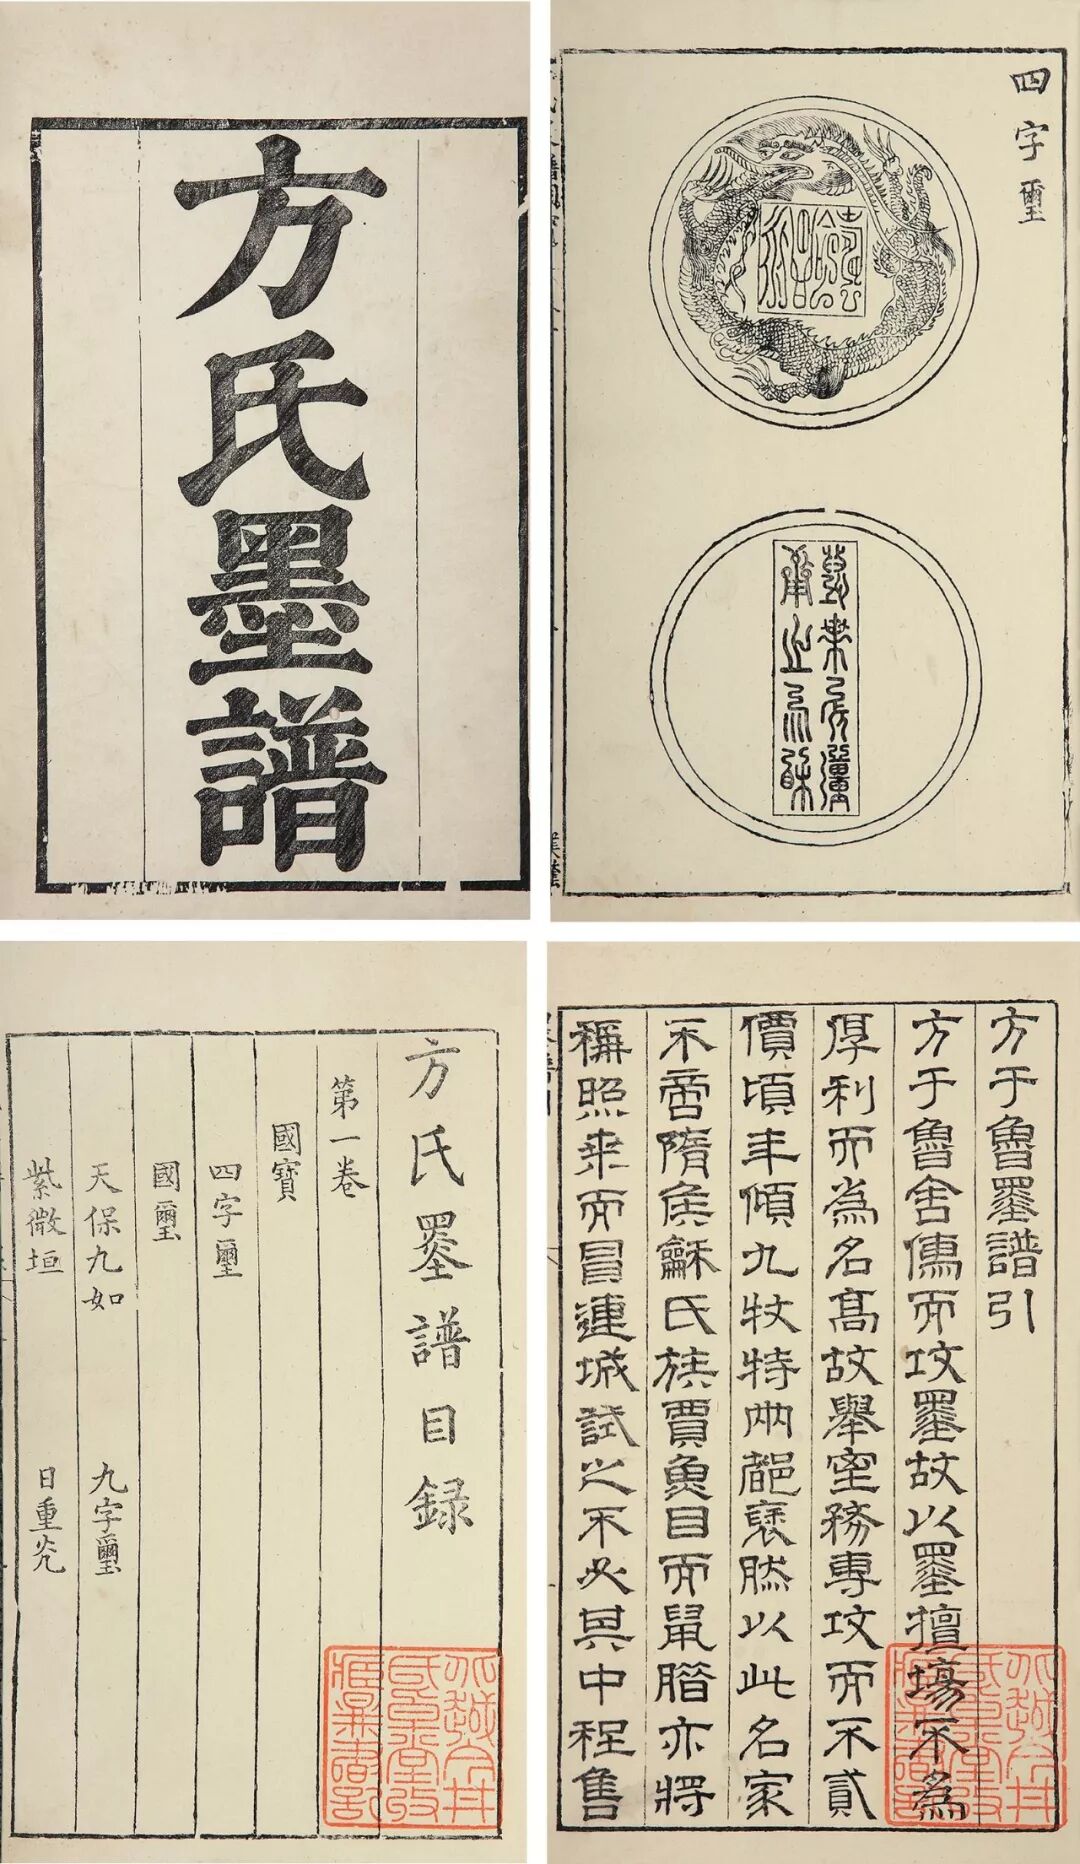 方氏墨譜
四字璽
方氏墨譜目録
第一卷
國寶
四字璽
國璽
天保九如 九字璽
紫微垣 日重光
方于魯墨譜引
方于魯舍儒而攻墨故以墨擅場不為
厚利而為名高故舉室務專攻而不貳
價頃年傾九牧特兩都裦然以此名家
不啻隋矦龢氏族賈魚目而鼠腊亦將
稱照乘而冒連城試之不必其中程售